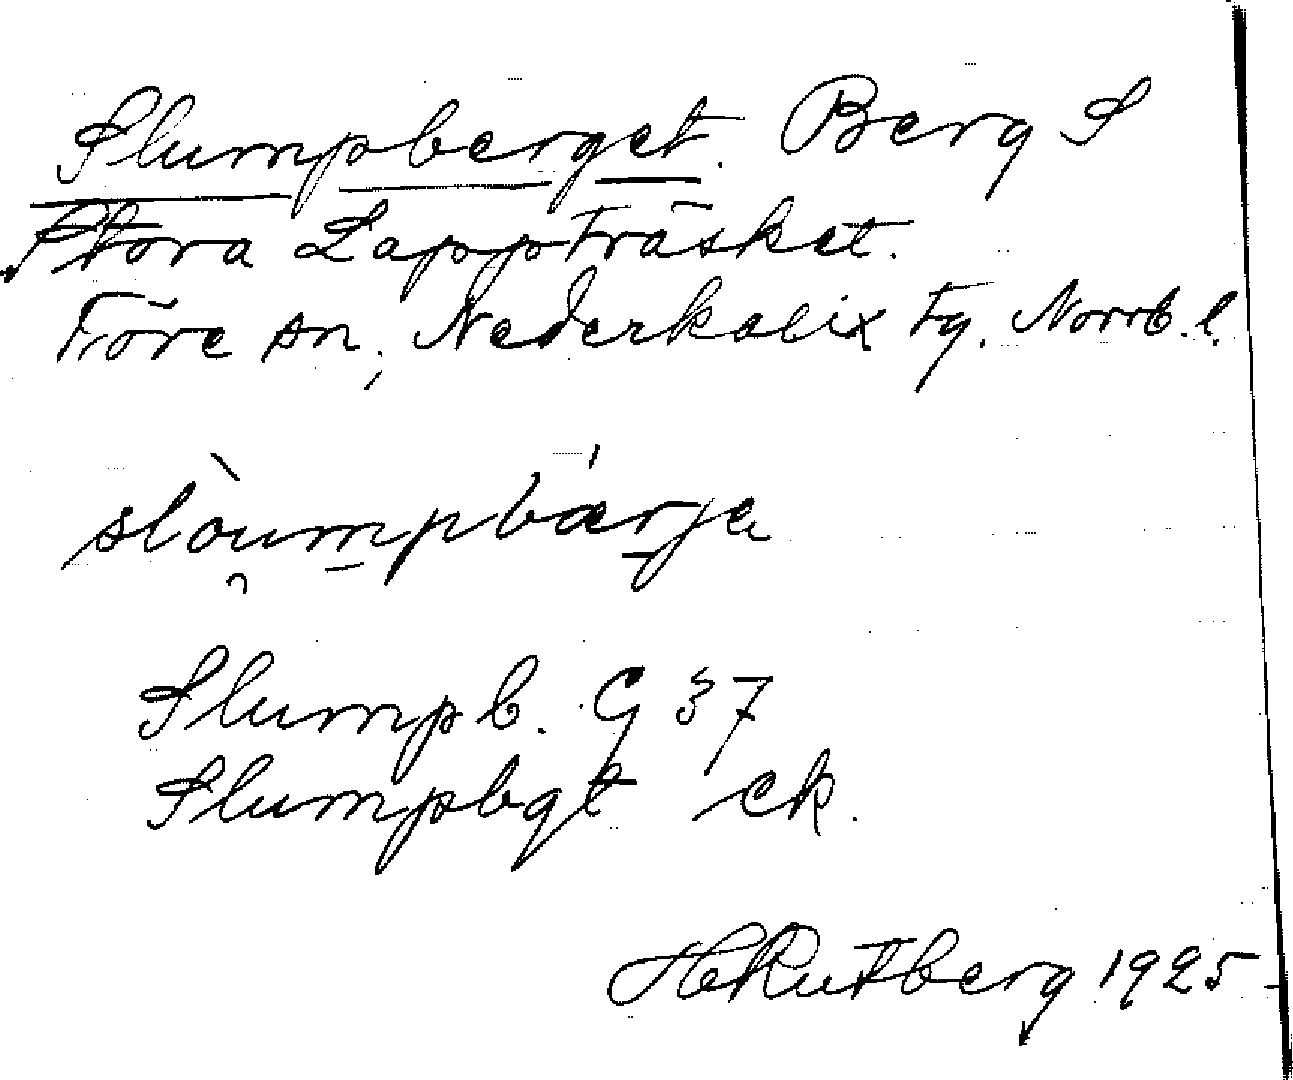 Slumpberget. Berg S
Stora Lappträsket.
Töre sn, Nederkalix tg. Norrb. l.
slòumpbærje
Slumpb. G 37
Slumpbgt ek.
H Rutberg 1925